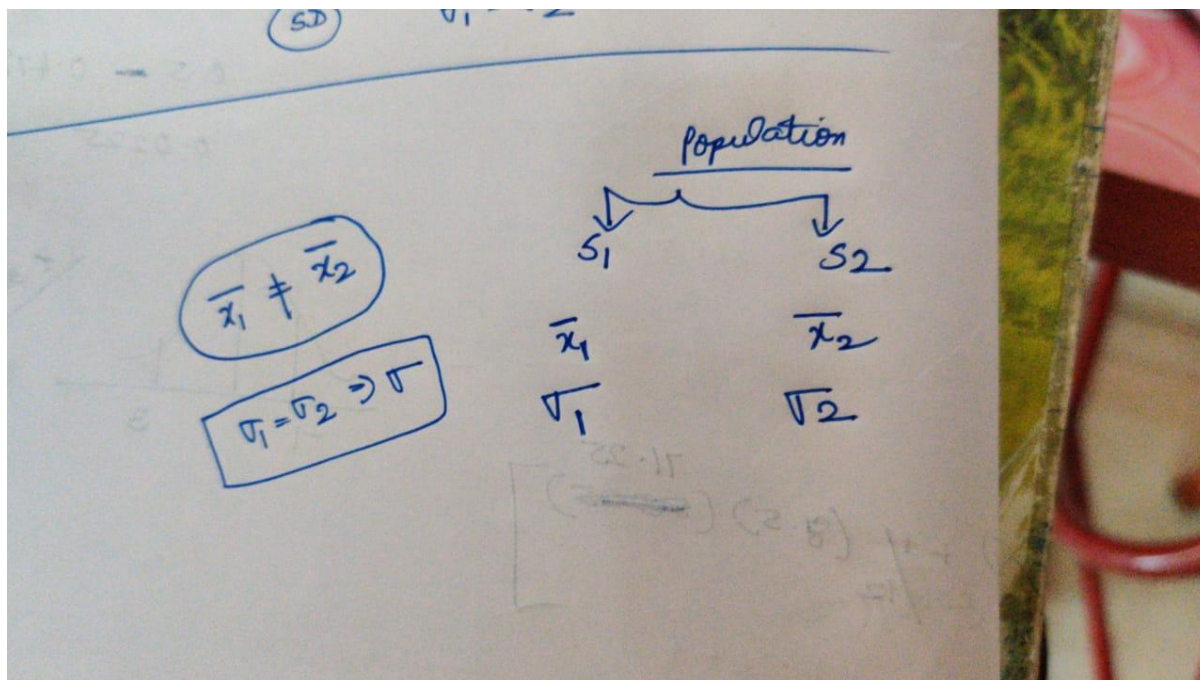 S.D
Population
S1 S2
x̄1 ≠ x̄2
x̄1 x̄2
σ1 = σ2 ⇒ σ
σ1 σ2